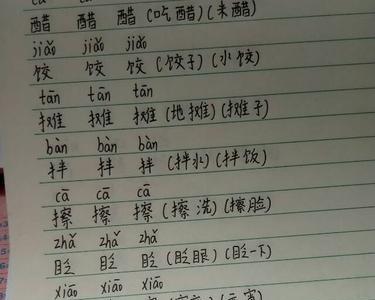 醋 醋 醋 (吃醋)(米醋)
jiǎo jiǎo jiǎo
饺 饺 饺 (饺子)(水饺)
tān tān tān
摊 摊 摊 (地摊)(摊子)
bàn bàn bàn
拌 拌 拌 (拌水)(拌饭)
cā cā cā
擦 擦 擦 (擦洗)(擦脸)
zhǎ zhǎ zhǎ
眨 眨 眨 (眨眼)(眨一下)
xiāo xiāo xiāo